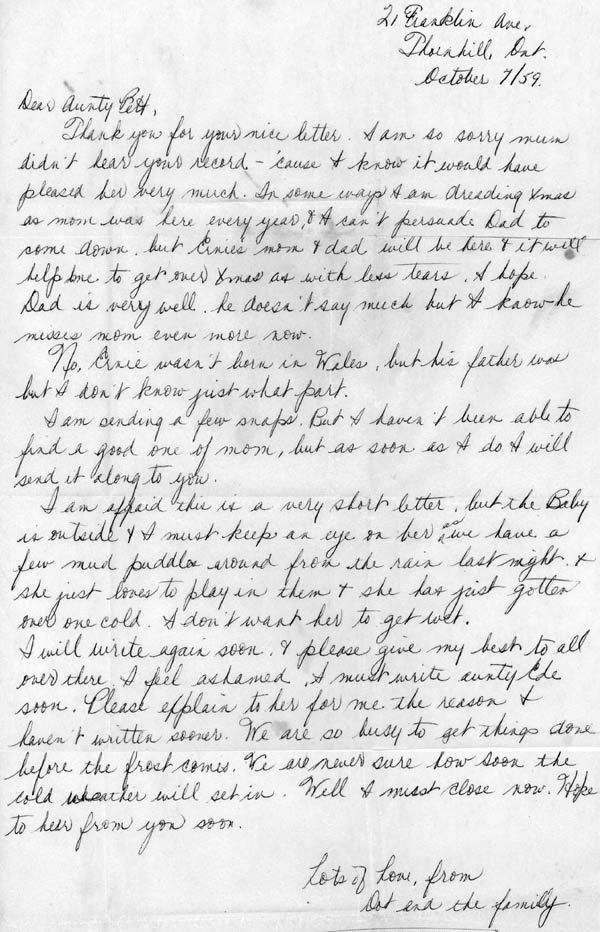 21 Franklin Ave,
Thornhill, Ont.
October 7/59.
Dear Aunty Pett,
Thank you for your nice letter. I am so sorry mum
didn't hear your record – 'cause I know it would have
pleased her very much. In some ways I am dreading Xmas
as mom was here every year, & I can't persuade Dad to
come down. but Ernie's mom & dad will be here & it will
help me to get over Xmas as with less tears, I hope.
Dad is very well. he doesn't say much but I know he
misses mom even more now.
No, Ernie wasn't born in Wales, but his father was
but I don't know just what part.
I am sending a few snaps. But I haven't been able to
find a good one of mom, but as soon as I do I will
send it along to you.
I am afraid this is a very short letter, but the Baby
is outside & I must keep an eye on her as we have a
few mud puddles around from the rain last night. &
she just loves to play in them & she has just gotten
over one cold. I don't want her to get wet.
I will write again soon. & please give my best to all
over there. I feel ashamed, I must write aunty Ede
soon. Please explain to her for me the reason I
haven't written sooner. We are so busy to get things done
before the frost comes. We are never sure how soon the
cold wheather will set in. Well I must close now. Hope
to hear from you soon.
Lots of Love, from
Dot and the family.